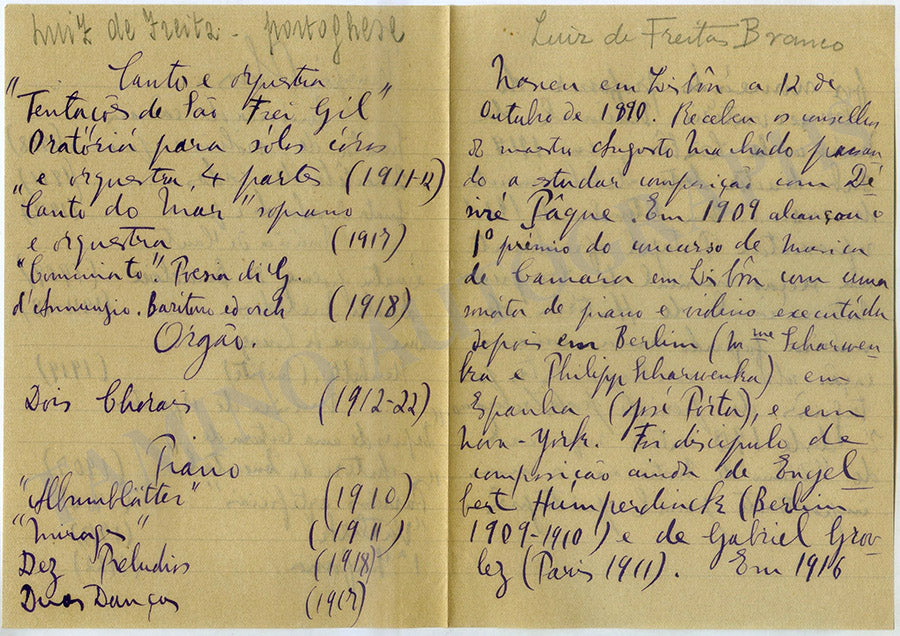 Luiz de Freitz - portoghese
Canto e orquestra
"Tentações de São Frei Gil"
Oratória para sólos córos
e orquestra, 4 partes (1911-12)
"Canto do Mar" soprano
e orquestra (1917)
"Commiato" Poesia di G.
d'Annunzio. Baritono ed orch (1918)
Orgão.
Dois Choraes (1912-22)
Piano
"Albumblätter" (1910)
"Mirages" (1911)
Dez Preludios (1918)
Duas Danças (1917)
Luiz de Freitas Branco
Nasceu em Lisbôa a 12 de
Outubro de 1890. Recebeu os conselhos
do maestro Augusto Machado passan
do a estudar composição com Dé-
sire Pâque. Em 1909 alcançou o
1º prémio do concurso de musica
de Camara em Lisbôa com uma
sonata de piano e violino executáda
depois em Berlim (Mme Scharwen-
ka e Philipp Scharwenka) em
Espanha, (José Pórta), e em
Nova-York. Foi discipulo de
composição ainda de Engel
bert Humperdinck (Berlim
1909-1910) e de Gabriel Grov-
lez (Paris 1911). Em 1916